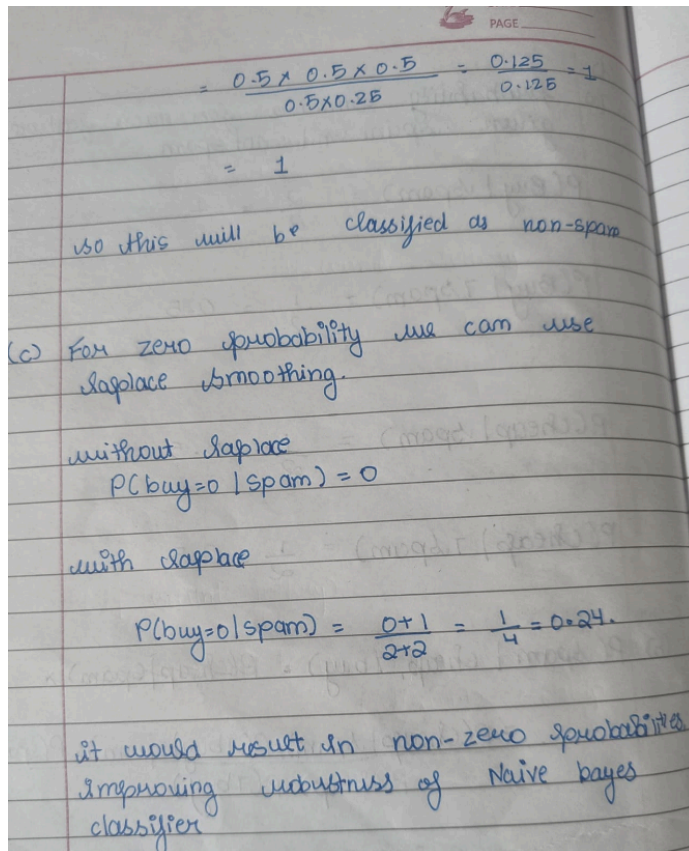 PAGE
= 0.5 x 0.5 x 0.5 / 0.5x0.25 = 0.125 / 0.125 = 1
= 1
so this will be classified as non-spam
(c) For zero probability we can use
laplace smoothing.
without laplace
P(buy=0 | spam) = 0
with laplace
P(buy=0 | spam) = 0+1 / 2+2 = 1 / 4 = 0.24.
it would result in non-zero probabilities
improving robustness of Naive bayes
classifier